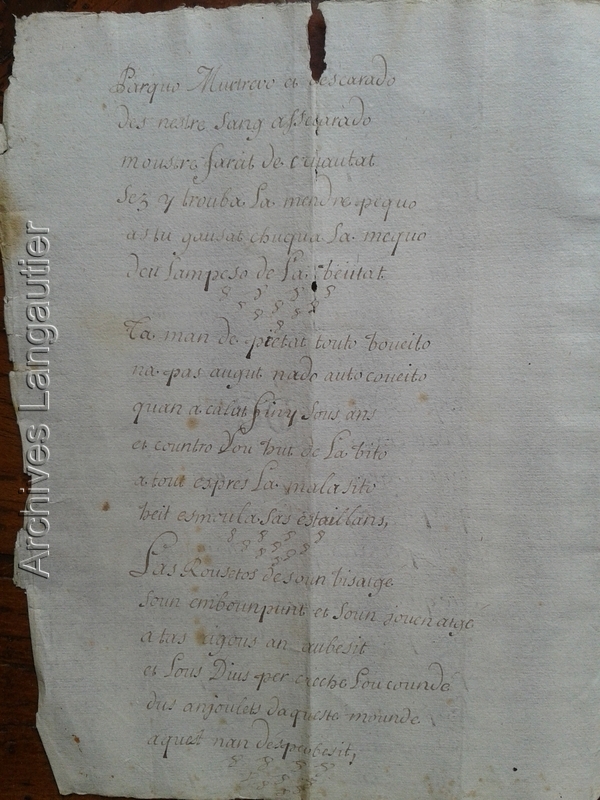 Parquo Murtrero et descarado
des nestre sang assesarado
moustre farat de cruautat
sez y trouba la mendre pequo
as tu gausat chuqua la mequo
deu lampeso de la beutat
Ta man de pietat touto boueito
na pas augut nado auto coueito
quan a calat finy sous ans
et countro lou but de la bito
a tout espres la mala sito
heit esmoula sas estaillans,
Las Rousetos de soun bisatge
soun embounpunt et soun jouenatge
a tas aigous an aubesit
et lous Dius per creche lou counde
dus anjoulets daqueste mounde
aquet nan despeubesit,
Archives Langautier